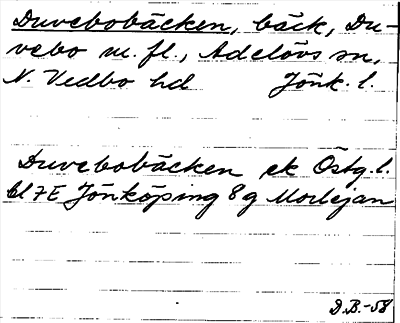 Duvebobäcken, bäck, Du-
vebo m. fl., Adelövs sn,
N. Vedbo hd Jönk. l.
Duvebobäcken ek Östg. l.
bl 7E Jönköping 8g Morlejan
D.B.-58